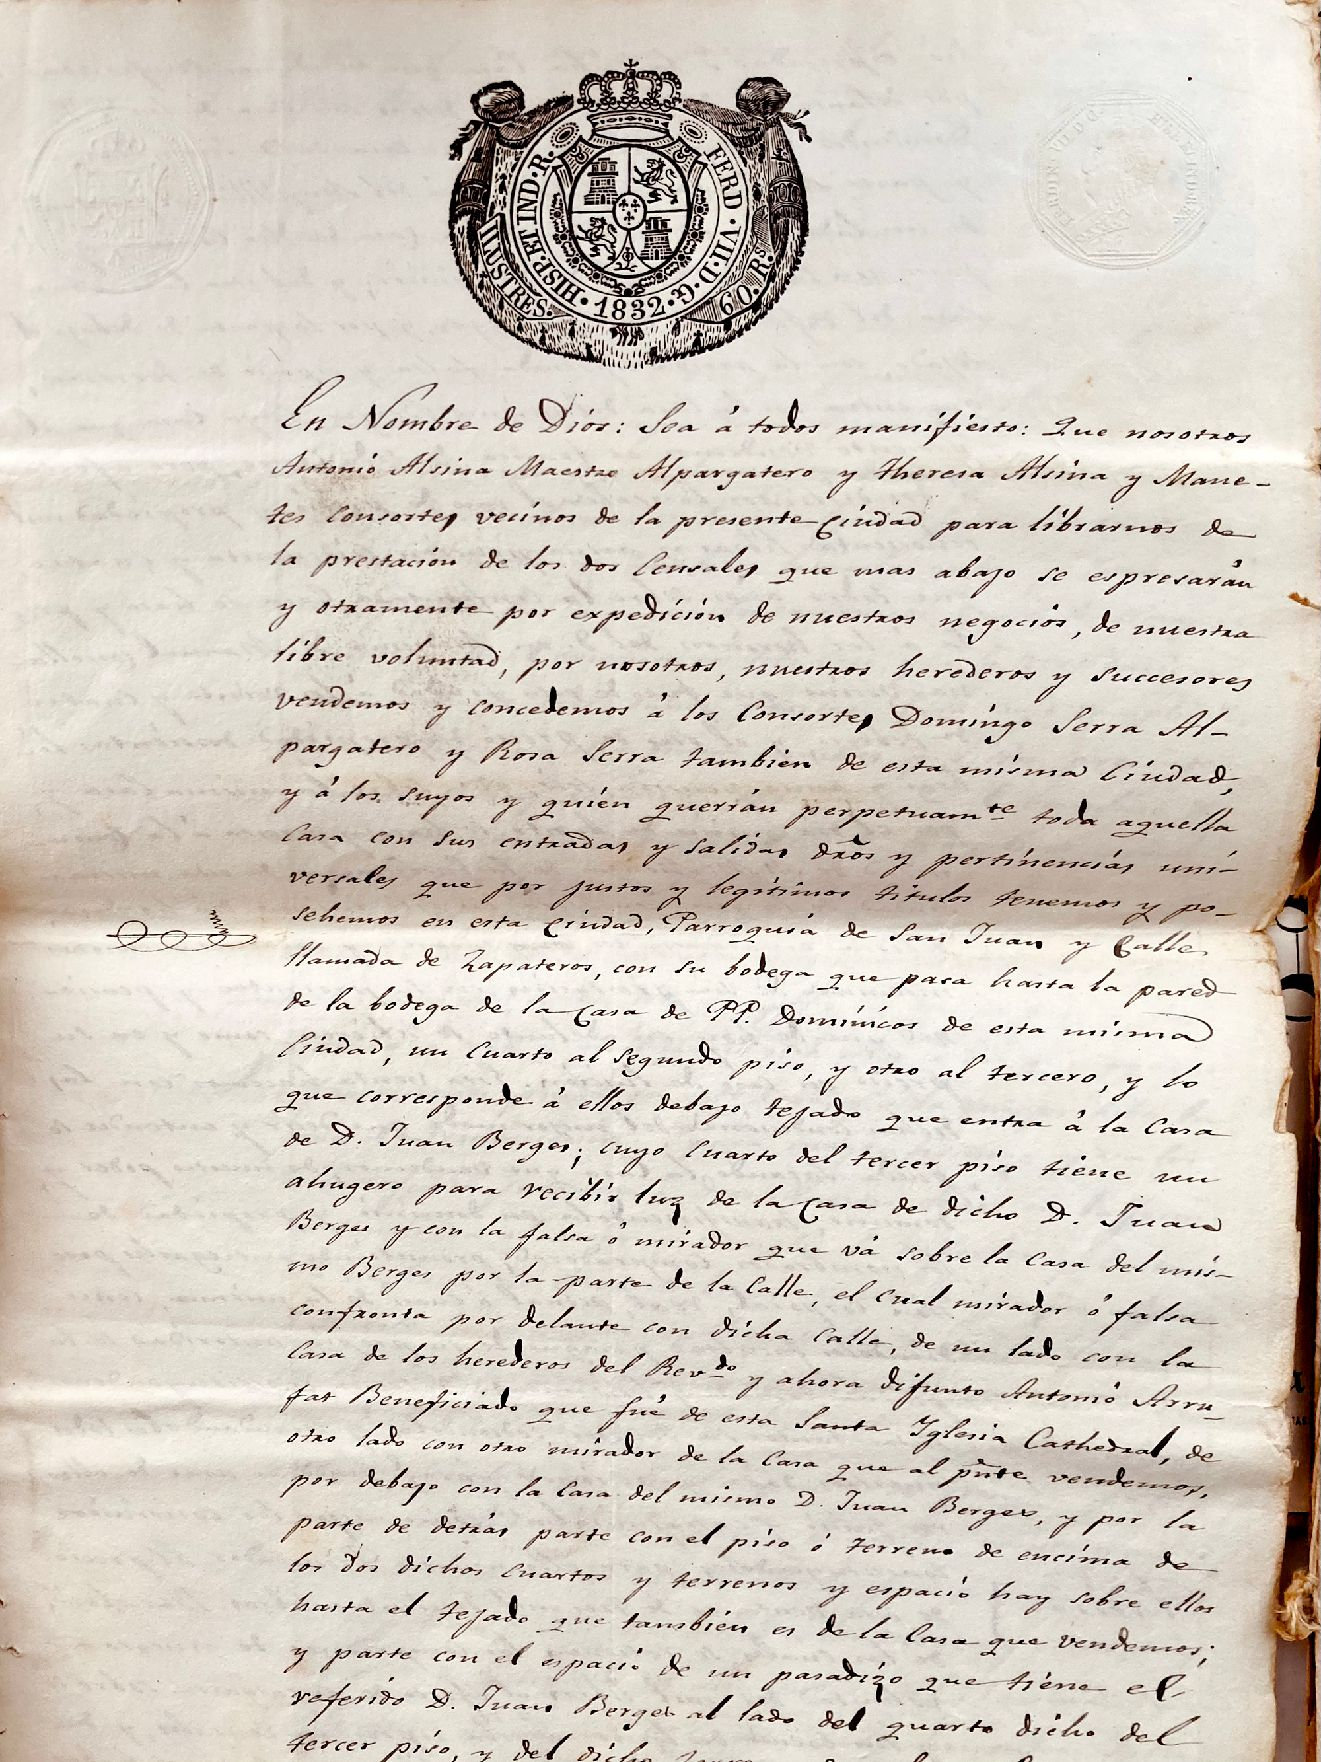 HISP·ET IND·R. FERD·VII·D·G·1832·
ILUSTRES. 60.Rs.
En Nombre de Dios: Sea á todos manifiesto: Que nosotros
Antonio Alsina Maestro Alpargatero y Theresa Alsina y Mane-
tes Consortes vecinos de la presente Ciudad para librarnos de
la prestación de los dos Censales que mas abajo se espresarán
y otramente por expedición de nuestros negocios, de nuestra
libre voluntad, por nosotros, nuestros herederos y successores
vendemos y concedemos á los Consortes Domingo Serra Al-
pargatero y Rosa Serra tambien de esta misma Ciudad,
y á los suyos y quien querrán perpetuamte toda aquella
Casa con sus entradas y salidas dros y pertinencias uni-
versales que por justos y legitimos titulos tenemos y po-
sehemos en esta Ciudad, Parroquia de San Juan y Calle
llamada de Zapateros, con su bodega que pasa hasta la pared
de la bodega de la Casa de PP. Dominicos de esta misma
Ciudad, un Cuarto al segundo piso, y otro al tercero, y lo
que corresponde á ellos debajo tejado que entra á la Casa
de D. Juan Berges; cuyo Cuarto del tercer piso tiene un
ahugero para recibir luz de la Casa de dicho D. Juan
Berges y con la falsa ó mirador que vá sobre la Casa del mis-
mo Berges por la parte de la Calle, el cual mirador ó falsa
confronta por delante con dicha Calle, de un lado con la
Casa de los herederos del Revdo y ahora difunto Antonio Arru-
fat Beneficiado que fué de esta Santa Iglesia Cathedral, de
otro lado con otro mirador de la Casa que al pñte vendemos,
por debajo con la Casa del mismo D. Juan Berges, y por la
parte de detrás parte con el piso ó terreno de encima de
los dos dichos cuartos y terrenos y espacio hay sobre ellos
hasta el tejado que también es de la Casa que vendemos;
y parte con el espacio de un pasadizo que tiene el
referido D. Juan Berges al lado del quarto dicho del
tercer piso, y del dicho